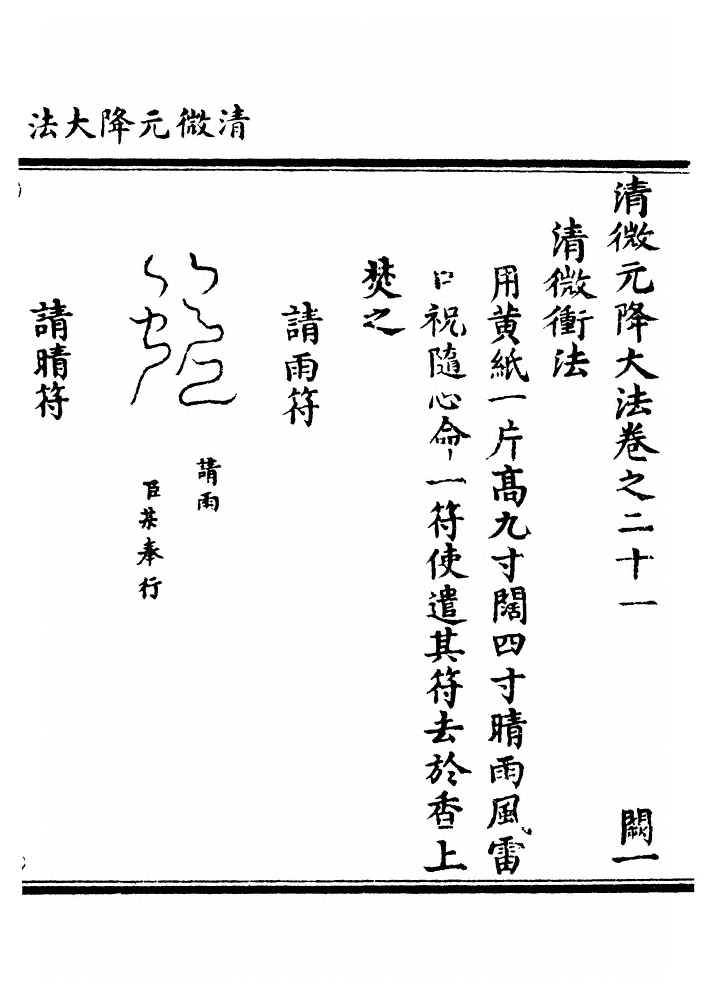 清微元降大法
清微元降大法卷之二十一 闕一
清微衝法
用黃紙一片高九寸闊四寸晴雨風雷
口祝隨心命一符使遣其符去於香上
焚之
請雨符
請雨
臣某奉行
請晴符